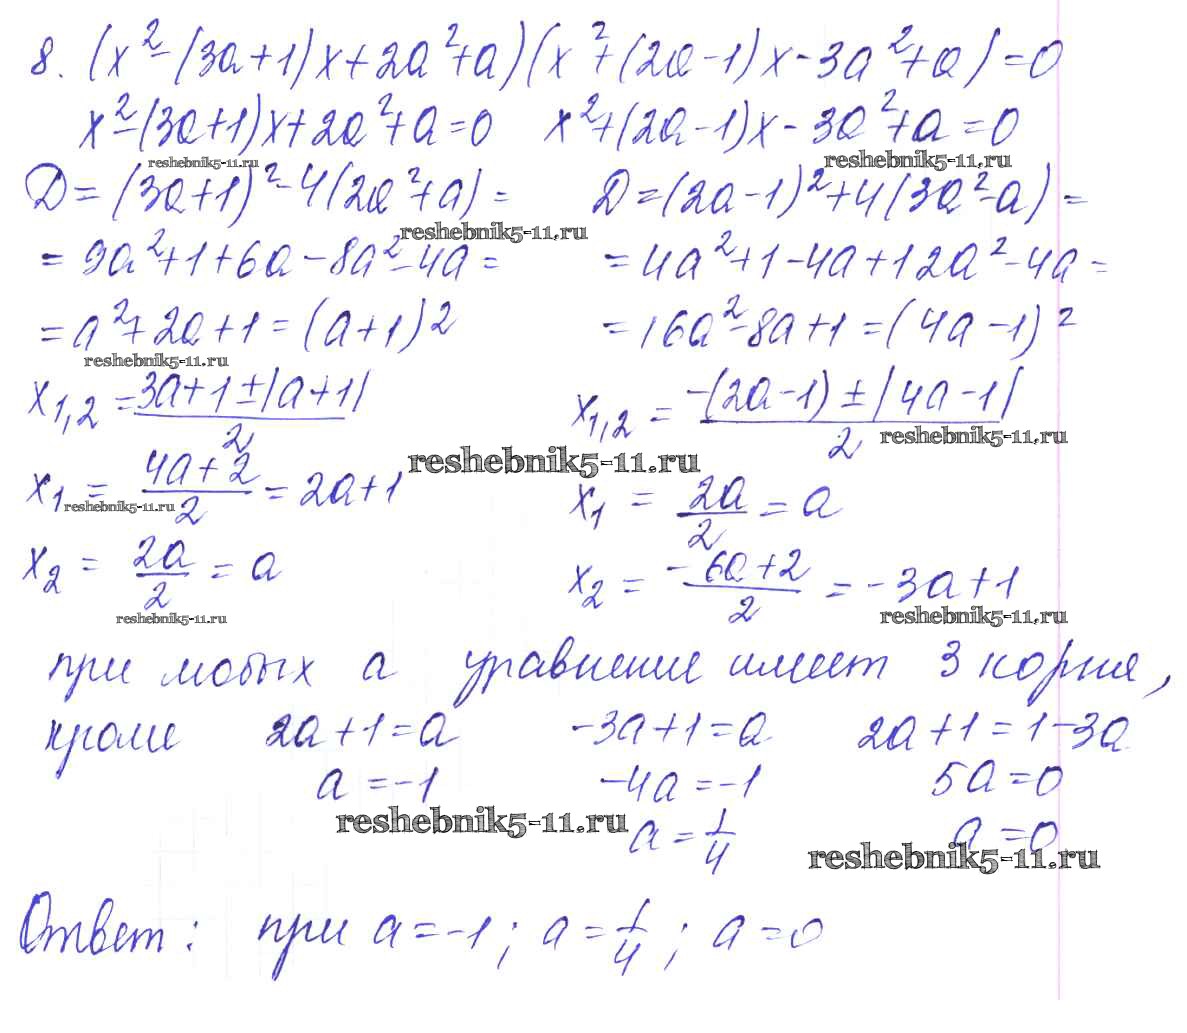 8. (x² - (3a+1)x + 2a² + a)(x² + (2a-1)x - 3a² + a) = 0
x² - (3a+1)x + 2a² + a = 0    x² + (2a-1)x - 3a² + a = 0
reshebnik5-11.ru    reshebnik5-11.ru
D = (3a+1)² - 4(2a² + a) =    D = (2a-1)² + 4(3a² - a) =
reshebnik5-11.ru
= 9a² + 1 + 6a - 8a² - 4a =    = 4a² + 1 - 4a + 12a² - 4a =
= a² + 2a + 1 = (a+1)²    = 16a² - 8a + 1 = (4a-1)²
reshebnik5-11.ru
x₁,₂ = (3a+1 ± |a+1|)/2    x₁,₂ = (-(2a-1) ± |4a-1|)/2
reshebnik5-11.ru
reshebnik5-11.ru
x₁ = (4a+2)/2 = 2a+1    x₁ = 2a/2 = a
reshebnik5-11.ru
x₂ = 2a/2 = a    x₂ = (-6a+2)/2 = -3a+1
reshebnik5-11.ru    reshebnik5-11.ru
при любых a уравнение имеет 3 корня,
кроме    2a+1 = a    -3a+1 = a    2a+1 = 1-3a
a = -1    -4a = -1    5a = 0
reshebnik5-11.ru
a = 1/4    a = 0
reshebnik5-11.ru
Ответ: при a = -1; a = 1/4; a = 0